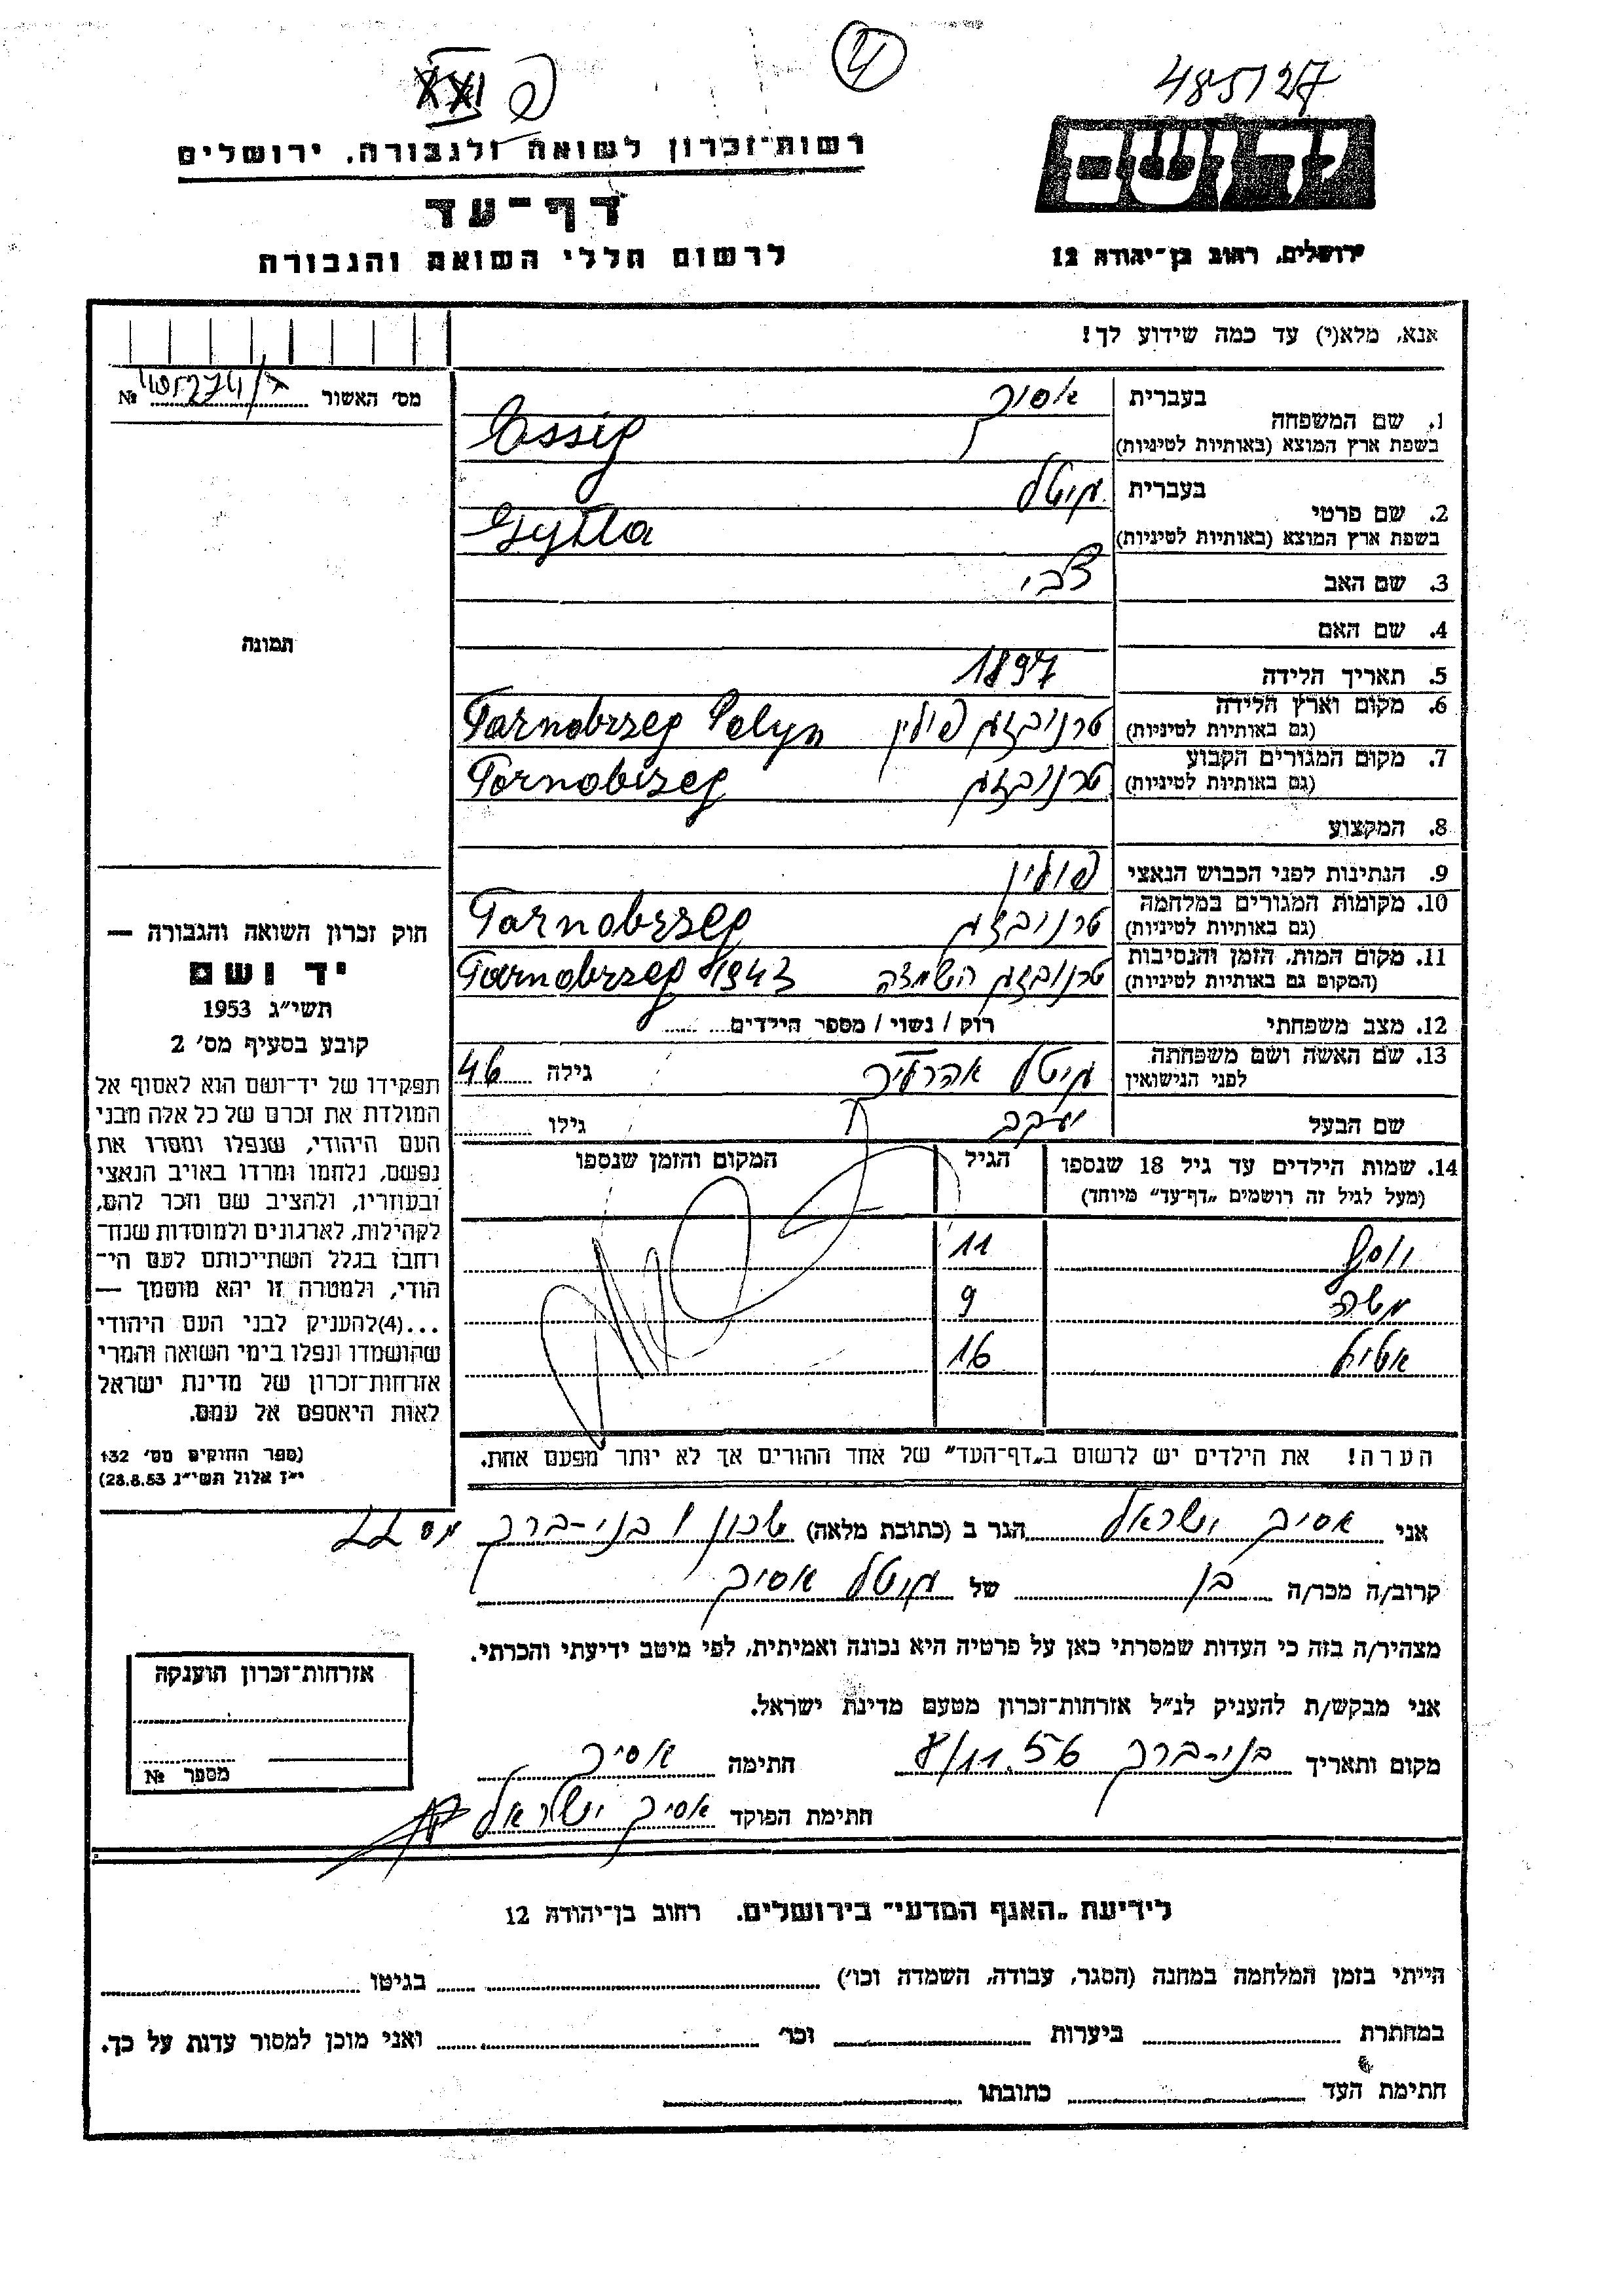 4
485127
רשות־זכרון לשואה ולגבורה, ירושלים
יד ושם
דף־עד
לרשום חללי השואה והגבורה
ירושלים, רחוב בן־יהודה 12
אנא, מלא(י) עד כמה שידוע לך!
מס׳ האשור № 
1. שם המשפחה
בעברית
בשפת ארץ המוצא (באותיות לטיניות)
Essig
2. שם פרטי
בעברית גיטל
בשפת ארץ המוצא (באותיות לטיניות)
Gytla
3. שם האב צבי
4. שם האם
5. תאריך הלידה 1897
6. מקום וארץ הלידה
(גם באותיות לטיניות) טרנובזג פולין Tarnobrzeg Polyn
7. מקום המגורים הקבוע
(גם באותיות לטיניות) טרנובזג Tarnobrzeg
8. המקצוע
9. הנתינות לפני הכבוש הנאצי פולין
10. מקומות המגורים במלחמה
(גם באותיות לטיניות) טרנובזג Tarnobrzeg
11. מקום המות, הזמן והנסיבות
(המקום גם באותיות לטיניות) טרנובזג השמדה Tarnobrzeg 1943
12. מצב משפחתי רוק / נשוי / מספר הילדים
13. שם האשה ושם משפחתה
לפני הנישואין גיטל גילה 46
שם הבעל יעקב גילו
14. שמות הילדים עד גיל 18 שנספו הגיל המקום והזמן שנספו
(מעל לגיל זה רושמים „דף־עד״ מיוחד)
יוסף 11
משה 9
16
הערה! את הילדים יש לרשום ב„דף־העד״ של אחד ההורים אך לא יותר מפעם אחת.
תמונה
חוק זכרון השואה והגבורה —
יד ושם
תשי״ג 1953
קובע בסעיף מס׳ 2
תפקידו של יד־ושם הוא לאסוף אל
המולדת את זכרם של כל אלה מבני
העם היהודי, שנפלו ומסרו את
נפשם, נלחמו ומרדו באויב הנאצי
ובעוזריו, ולהציב שם וזכר להם,
לקהילות, לארגונים ולמוסדות שנח־
רבו בגלל השתייכותם לעם הי־
הודי, ולמטרה זו יהא מוסמך —
...(4)להעניק לבני העם היהודי
שהושמדו ונפלו בימי השואה והמרי
אזרחות־זכרון של מדינת ישראל
לאות היאספם אל עמם.
(ספר החוקים מס׳ 132
י״ז אלול תשי״ג 28.8.53)
אני אסיג ישראל הגר ב (כתובת מלאה) בני־ברק מס 22
קרוב/ה מכר/ה בן של גיטל אסיג
מצהיר/ה בזה כי העדות שמסרתי כאן על פרטיה היא נכונה ואמיתית, לפי מיטב ידיעתי והכרתי.
אני מבקש/ת להעניק לנ״ל אזרחות־זכרון מטעם מדינת ישראל.
מקום ותאריך בני־ברק 8/11.56 חתימה אסיג
חתימת הפוקד אסיג ישראל
אזרחות־זכרון הוענקה
מספר №
לידיעת „האגף המדעי״ בירושלים. רחוב בן־יהודה 12
הייתי בזמן המלחמה במחנה (הסגר, עבודה, השמדה וכו׳) בגיטו
במחתרת ביערות וכו׳ ואני מוכן למסור עדות על כך.
חתימת העד כתובתו